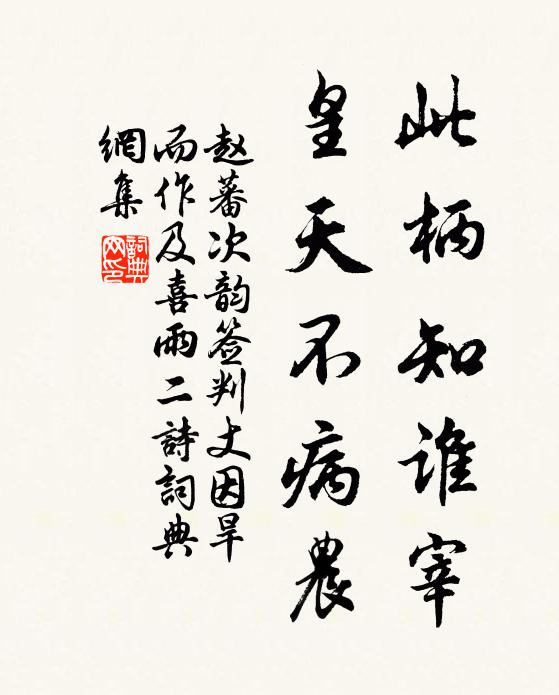 此柄知誰宰
皇天不病農
赵蕃次韵签判丈因旱
而作及喜雨二詩詞典
網集
詞典网印